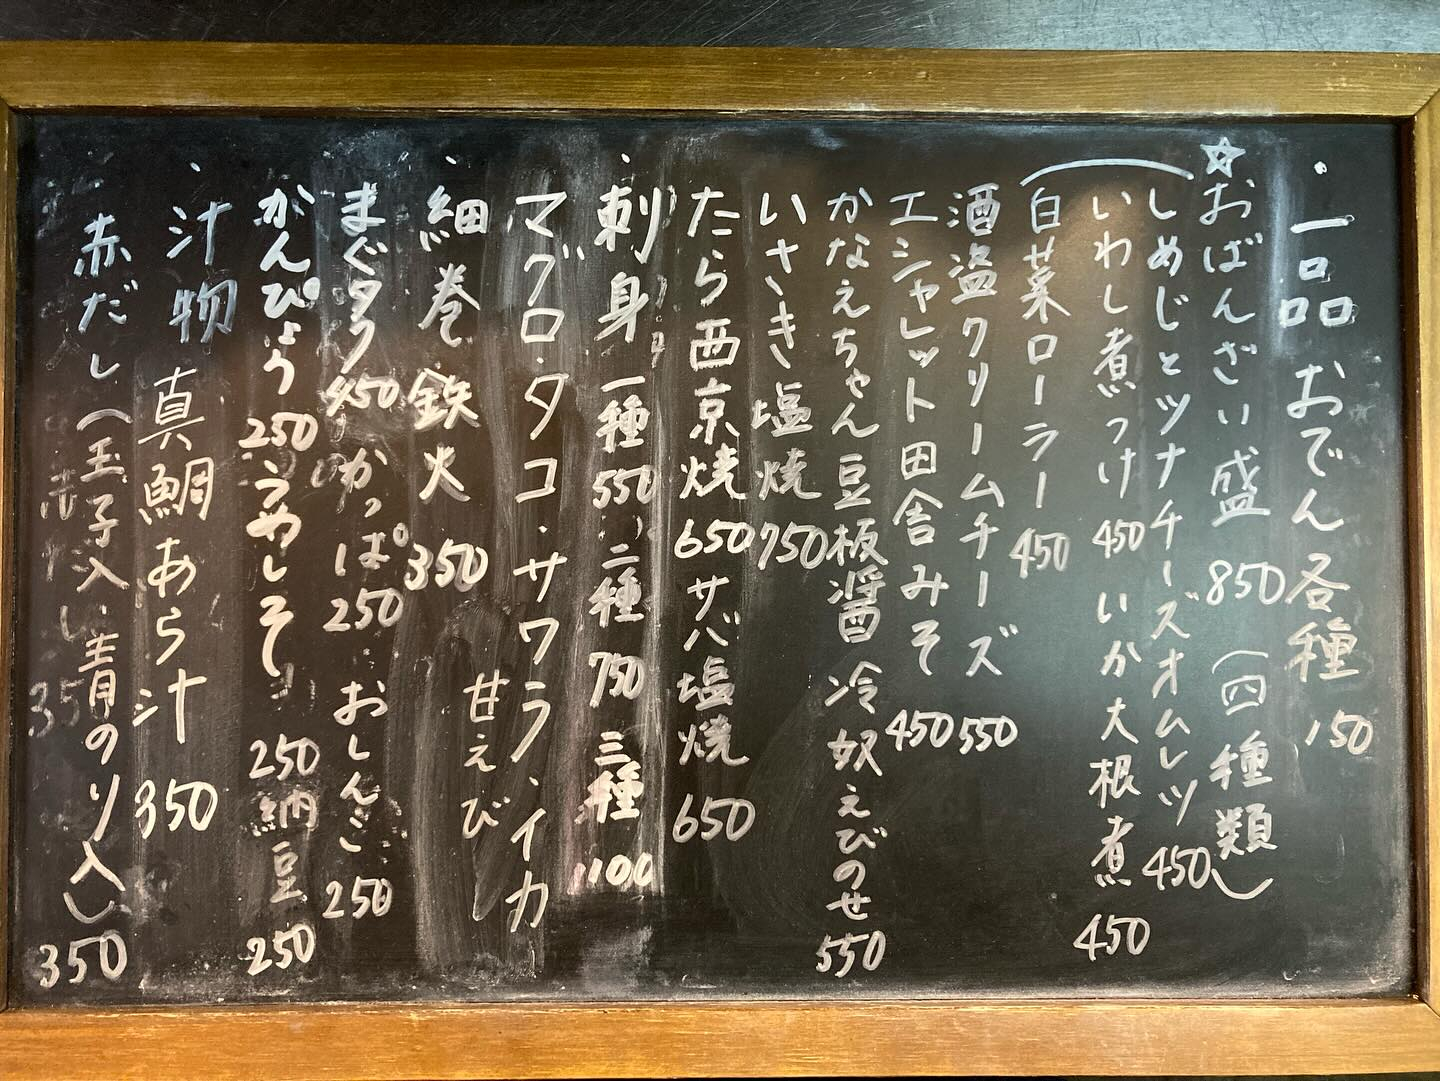 ・一品 おでん各種 150
☆おばんざい盛 850 (四種類)
しめじとツナチーズオムレツ 450
いわし煮つけ 450 いか大根煮 450
白菜ローラー 450
酒盗クリームチーズ 550
エシャレット田舎みそ 450
かなえちゃん豆板醤冷奴えびのせ 550
いさき塩焼 750
たら西京焼 650 サバ塩焼 650
・刺身 一種 550 二種 750 三種 1100
マグロ・タコ・サワラ・イカ
甘えび
・細巻 鉄火 350
まぐタク 450 かっぱ 250 おしんこ 250
かんぴょう 250 うめしそ 250 納豆 250
・汁物 真鯛あら汁 350
赤だし(玉子入い青のり入) 350